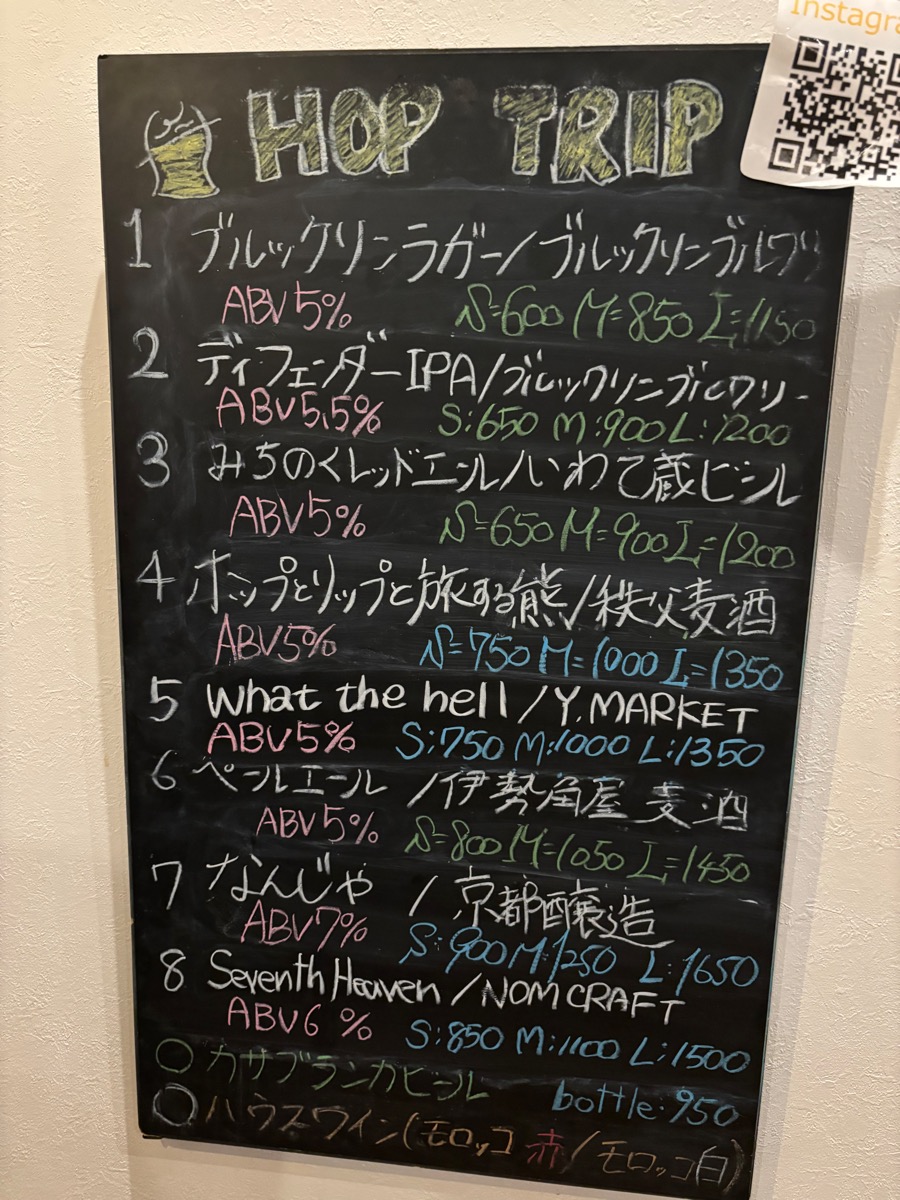 Instagra
HOP TRIP
1 ブルックリンラガー/ブルックリンブルワリ
ABV5% S=600 M=850 L=1150
2 ディフェンダーIPA/ブルックリンブルワリー
ABV5.5% S:650 M:900 L:1200
3 みちのくレッドエール/いわて蔵ビール
ABV5% S=650 M=900 L=1200
4 ホップとリップと旅する熊/秩父麦酒
ABV5% S=750 M=1000 L=1350
5 What the hell/Y.MARKET
ABV5% S:750 M:1000 L:1350
6 ペールエール /伊勢角屋麦酒
ABV5% S=800 M=1050 L=1450
7 なんじゃ /京都醸造
ABV7% S:900 M:1250 L:1650
8 Seventh Heaven/NOMCRAFT
ABV6% S:850 M:1100 L:1500
○カサブランカビール bottle:950
○ハウスワイン(モロッコ赤/モロッコ白)